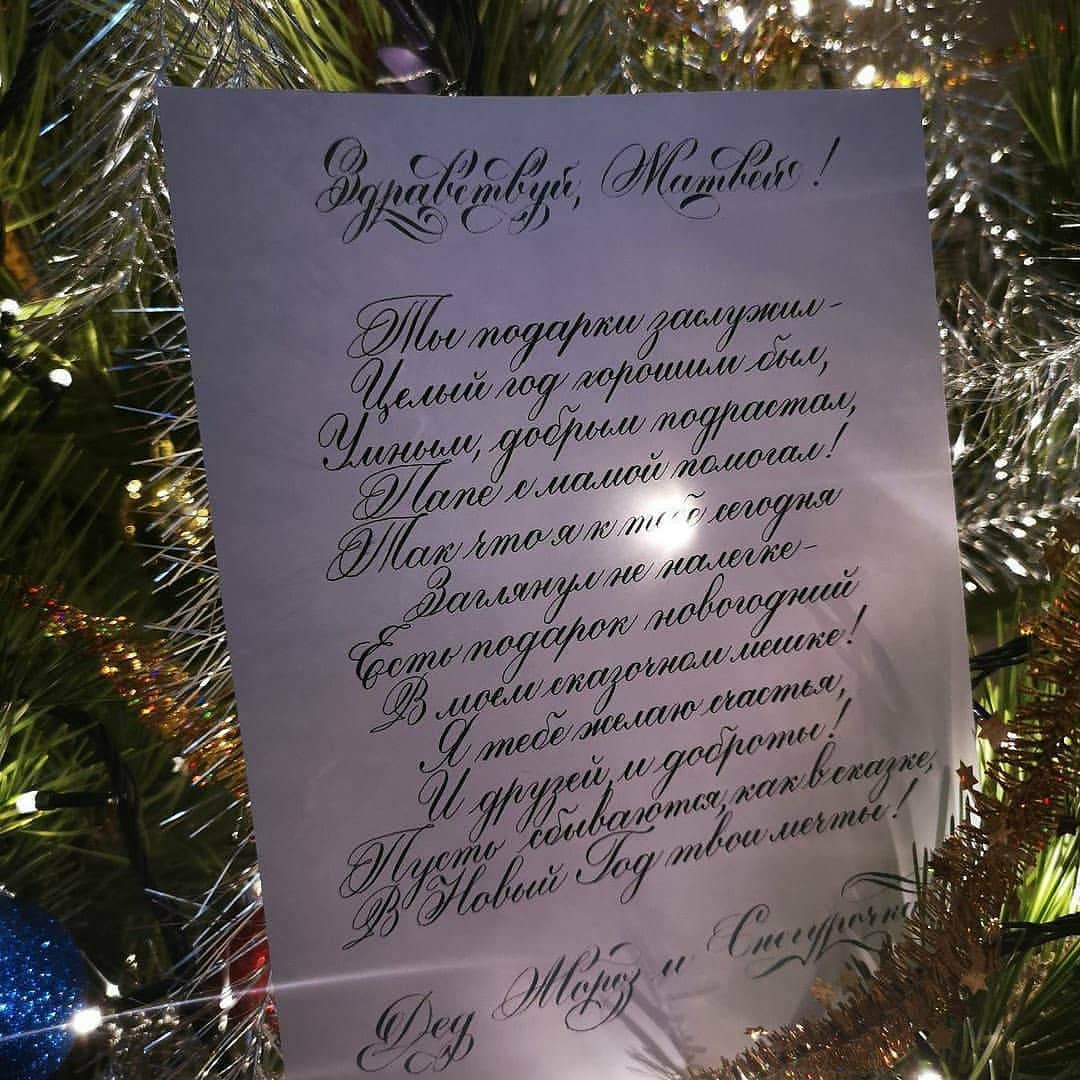 Здравствуй, Матвей!
Ты подарки заслужил-
Целый год хорошим был,
Умным, добрым подрастал,
Папе с мамой помогал!
Так что я к тебе сегодня
Заглянул не налегке-
Есть подарок новогодний
В моем сказочном мешке!
Я тебе желаю счастья,
И друзей, и доброты!
Пусть сбываются, как в сказке,
В Новый Год твои мечты!
Дед Мороз и Снегурочка